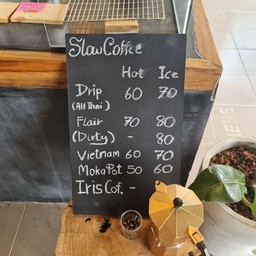 Slow Coffee
Hot Ice
Drip 60 70
(All Thai)
Flair 70 80
(Dirty) - 80
Vietnam 60 70
MokaPot 50 60
Iris Cof. -